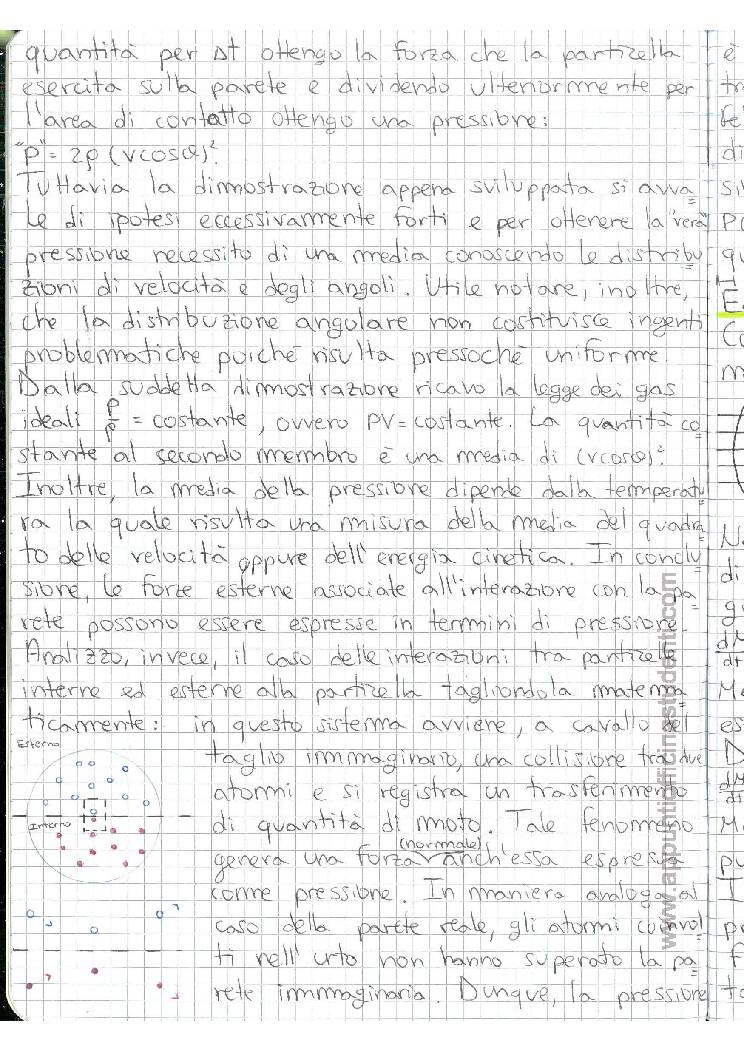 quantità per Δt ottengo la forza che la particella
esercita sulla parete e dividendo ulteriormente per
l'area di contatto ottengo una pressione:
"p" = 2ρ (v cosα)².
Tuttavia la dimostrazione appena sviluppata si avva
le di ipotesi eccessivamente forti e per ottenere la "vera"
pressione necessito di una media conoscendo le distribu
zioni di velocità e degli angoli. Utile notare, inoltre,
che la distribuzione angolare non costituisce ingenti
problematiche poiché risulta pressoché uniforme.
Dalla suddetta dimostrazione ricavo la legge dei gas
ideali p/ρ = costante, ovvero PV = costante. La quantità co
stante al secondo membro è una media di (v cosα)².
Inoltre, la media della pressione dipende dalla temperatu
ra la quale risulta una misura della media del quadra
to delle velocità oppure dell'energia cinetica. In conclu
sione, le forze esterne associate all'interazione con la pa
rete possono essere espresse in termini di pressione.
Analizzo, invece, il caso delle interazioni tra particelle
interne ed esterne alla particella tagliandola matema
ticamente: in questo sistema avviene, a cavallo del
Esterno
taglio immaginario, una collisione tra due
atomi e si registra un trasferimento
Interno
di quantità di moto. Tale fenomeno
(normale)
genera una forza anch'essa espressa
come pressione. In maniera analoga al
caso della parete reale, gli atomi coinvol
ti nell'urto non hanno superato la pa
rete immaginaria. Dunque, la pressione
www.appuntiofficinastudenti.com